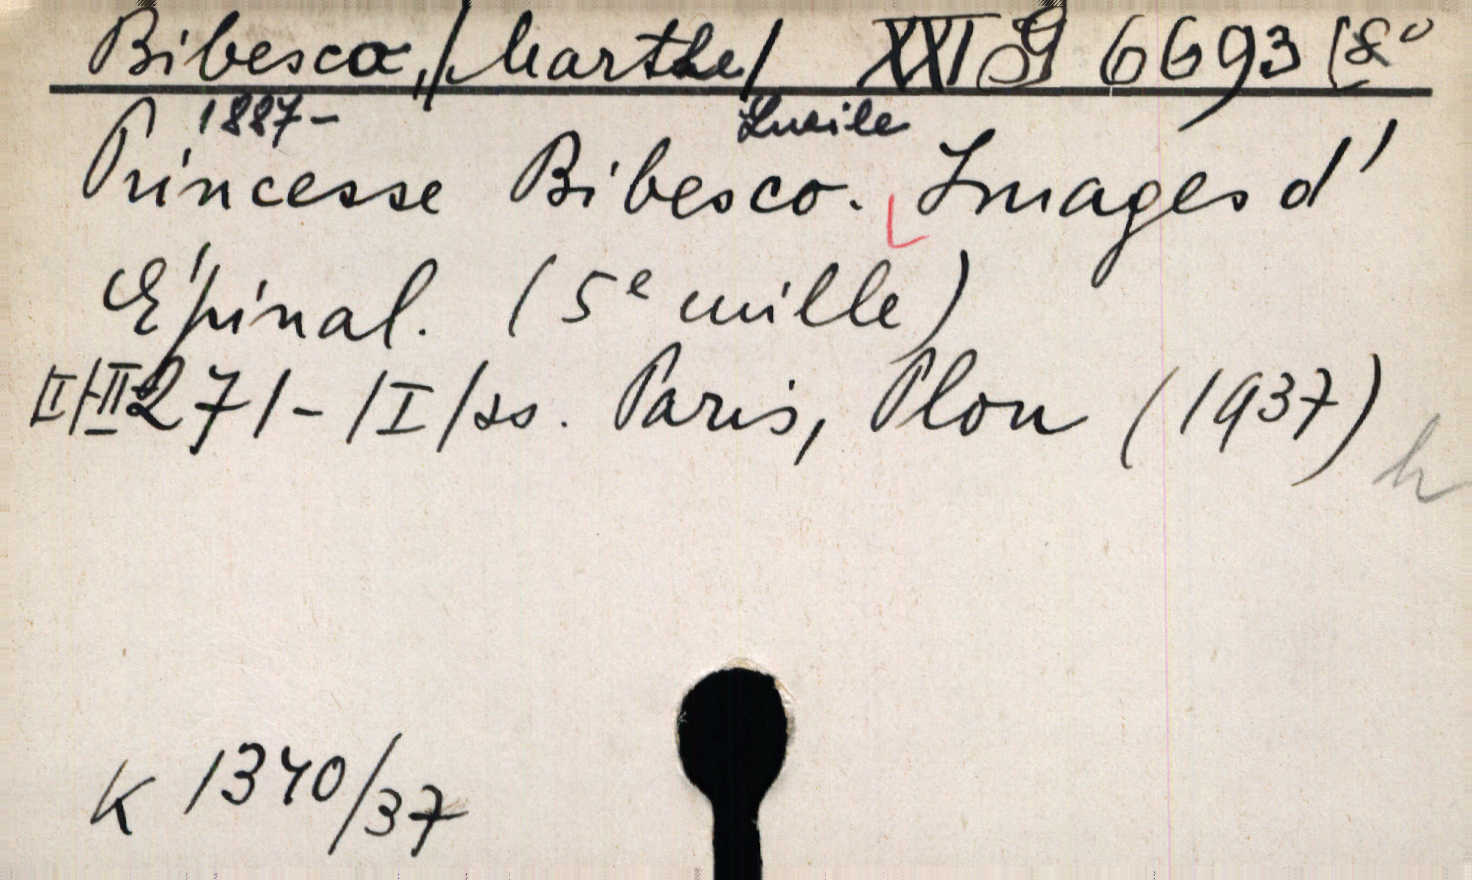 Bibesco, /Marthe/ XXI 6693 (8°
1887- Lucile
Princesse Bibesco. Images d'
Épinal. (5e mille)
II 271-/I/ss. Paris, Plon (1937)
h
K 1340/37